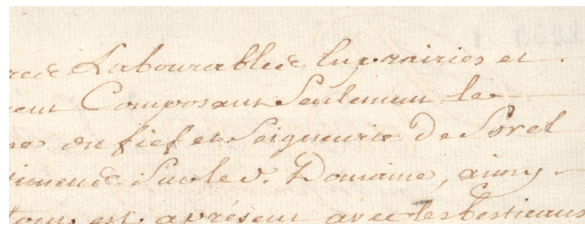 Labourables en prairies et
Composant Seulement le
ou fief et Seigneurie De Sorel
Sur le d. Domaine, ainsy
tout est apresent avec les bestiaux